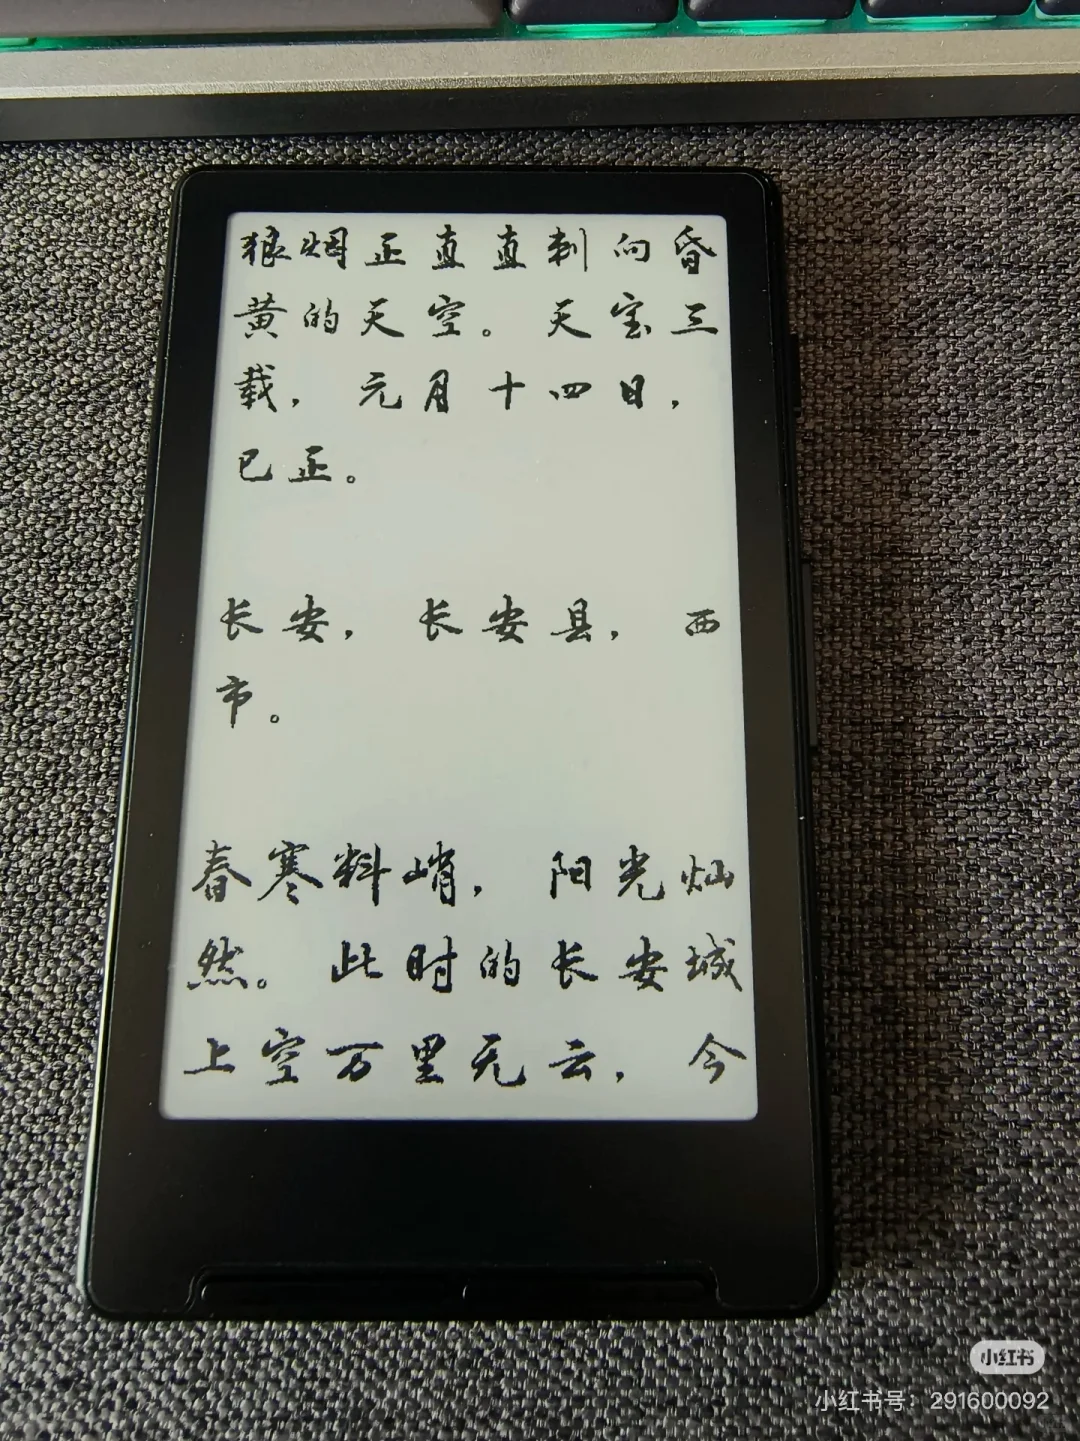 狼烟正直直刺向昏
黄的天空。天宝三
载，元月十四日，
已正。
长安，长安县，西
市。
春寒料峭，阳光灿
然。此时的长安城
上空万里无云，今
小红书
小红书号：291600092